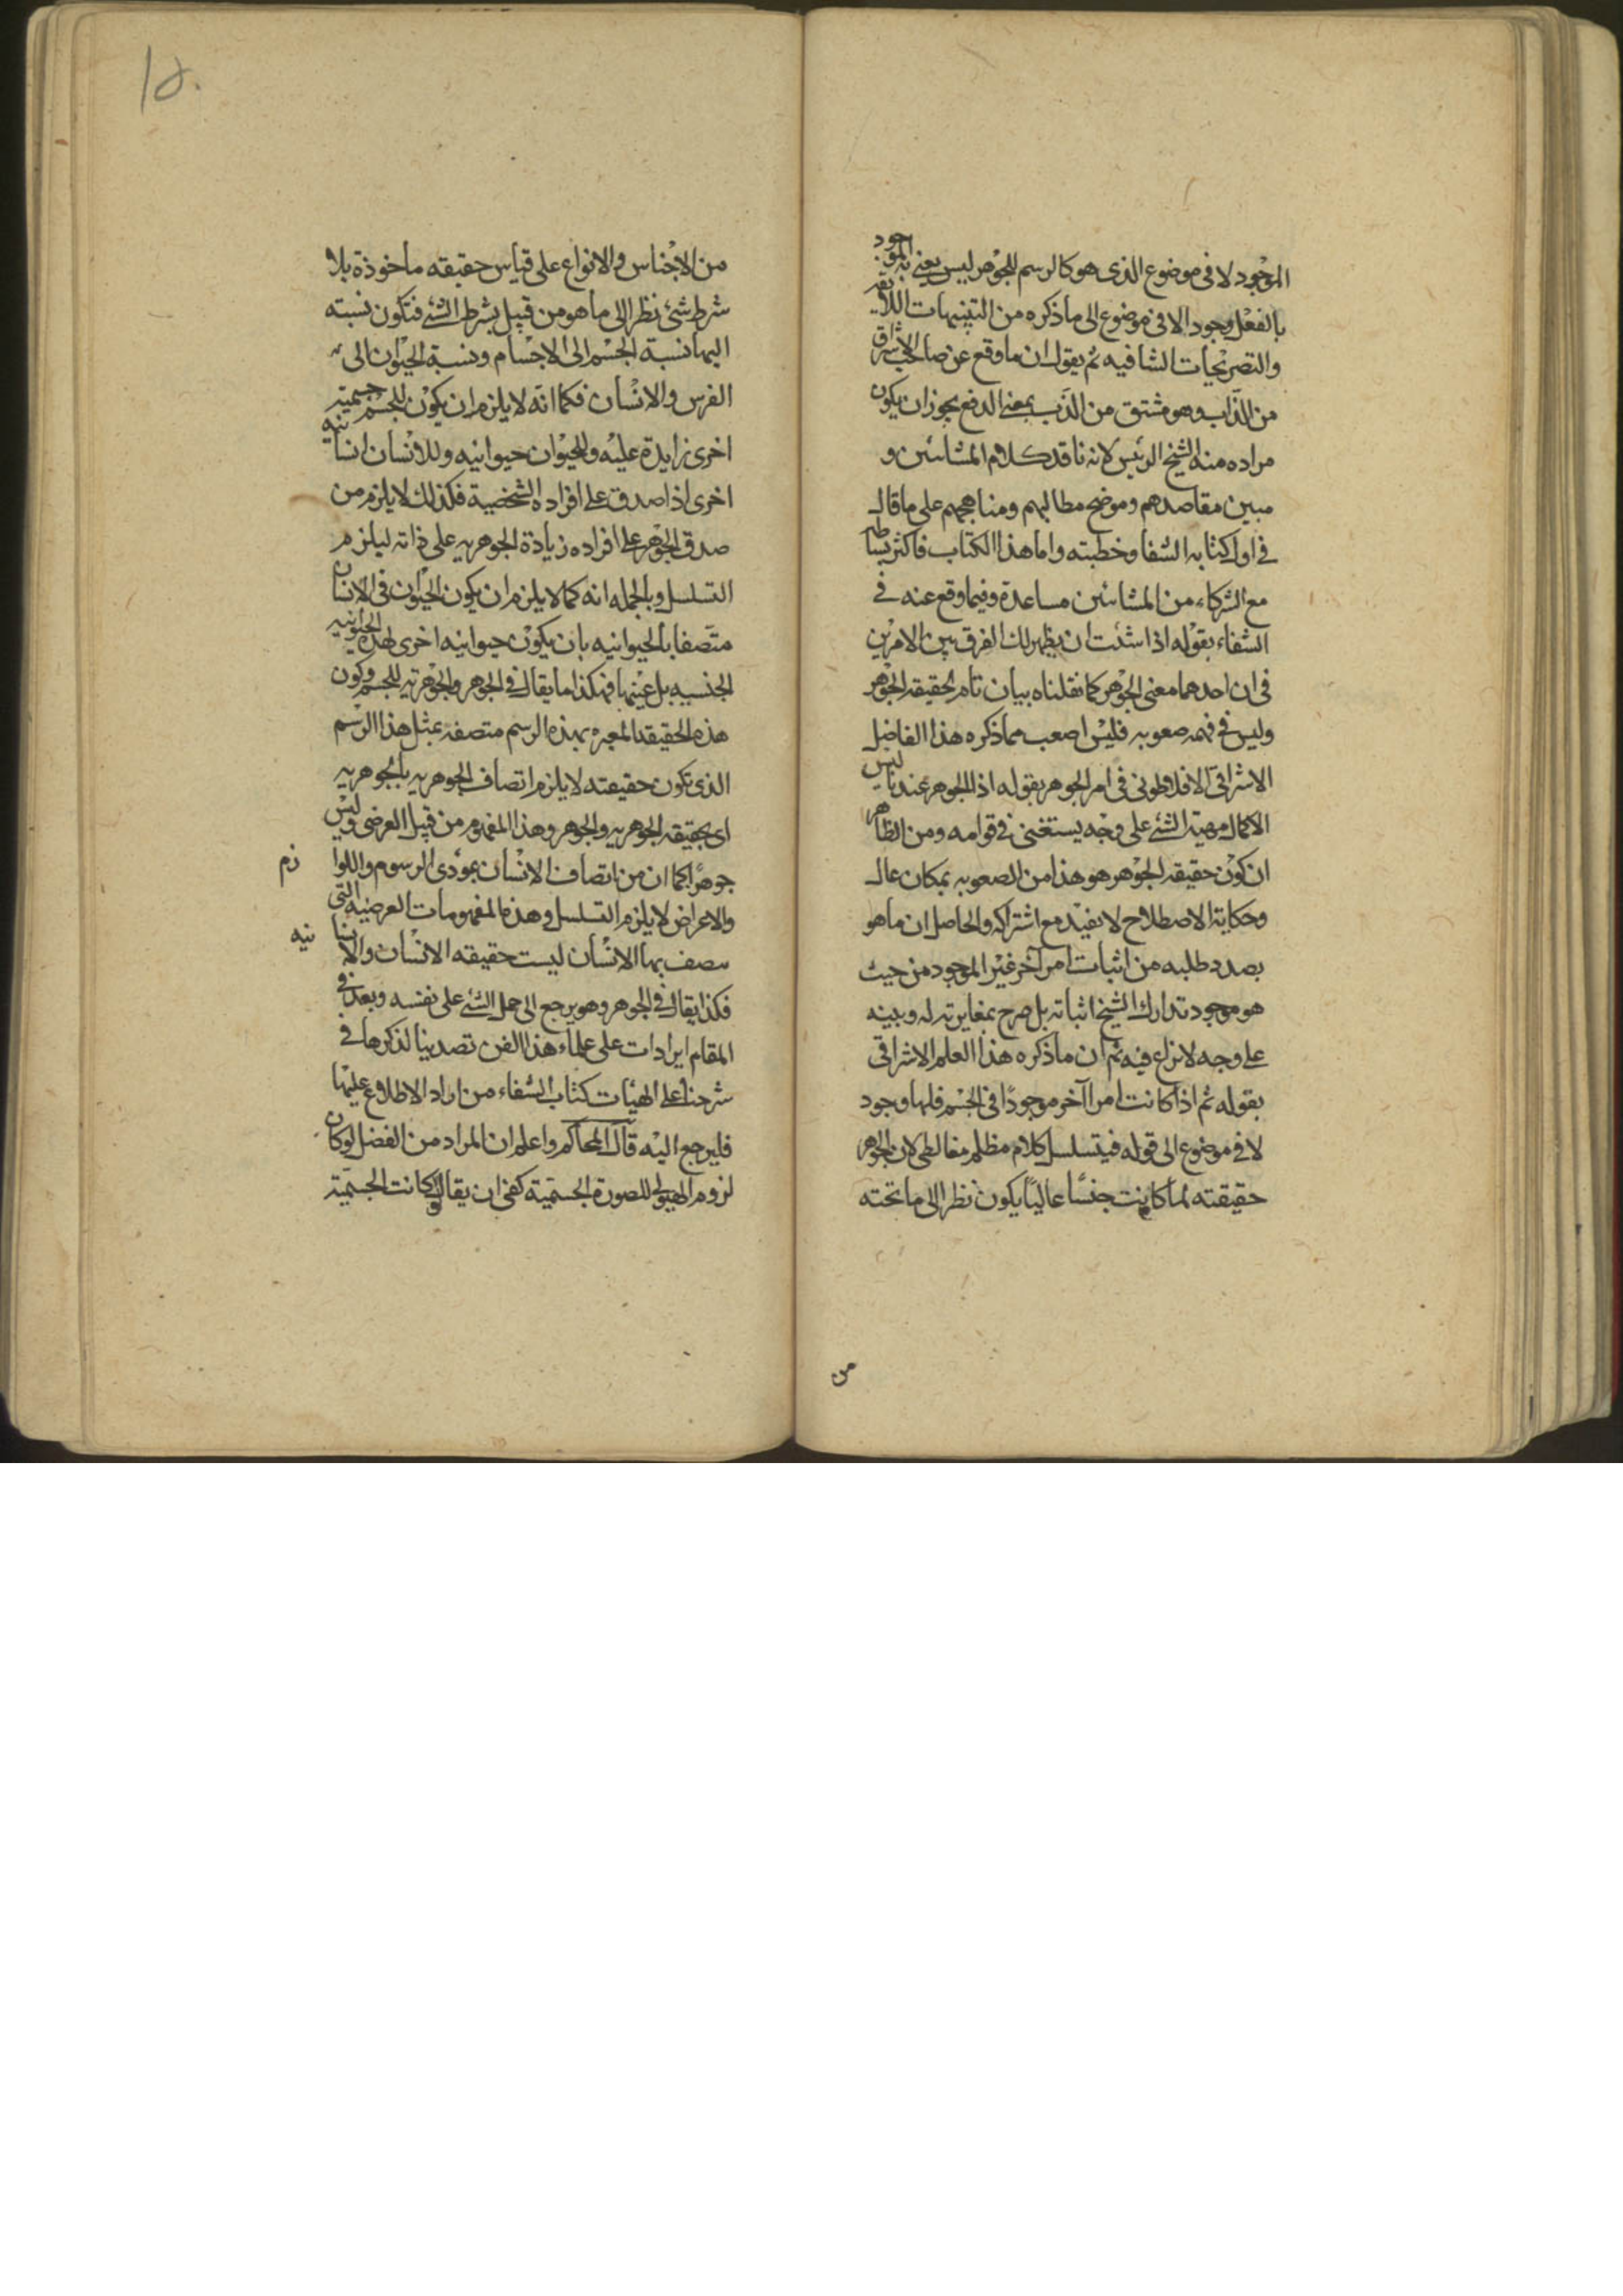 الموجود لا فى موضوع الذى هو كالرسم للجوهر ليس يعنى به الموجود
بالفعل وجودا لا فى موضوع الى ما ذكره من التنبيهات اللايقه
والتصريحات الشافيه ثم يقول ان ما وقع عن صاحب الاشراق
من الذاب وهو مشتق من الذب بمعنى الدفع يجوز ان يكون
مراده منه الشيخ الرئيس لانه ناقد كلام المشائين و
مبين مقاصدهم وموضح مطالبهم ومناهجهم على ما قال
فى اول كتابه الشفا وخطبته واما هذا الكتاب فاكثر بسطا
مع الشركاء من المشائين مساعدة وفيما وقع عنه فى
الشفاء بقوله اذا شئت ان يظهر لك الفرق بين الامرين
فى ان احدهما معنى الجوهر كما نقلناه بيان تام لحقيقه الجوهر
وليس فى فهمه صعوبه فليس اصعب مما ذكره هذا الفاضل
الاشراقى الافلاطونى فى امر الجوهر بقوله اذ الجوهر عندنا ليس
الا كمال مهية الشئ على وجه يستغنى فى قوامه ومن الظاهر
ان كون حقيقه الجوهر هو هذا من الصعوبه بمكان عال
وحكاية الاصطلاح لا يفيد مع اشتراكه والحاصل ان ما هو
بصدد طلبه من اثبات امر آخر غير الموجود من حيث
هو موجود تدارك الشيخ اثباته بل صرح بمغايرته له وبينه
على وجه لا نزاع فيه ثم ان ما ذكره هذا العلم الاشراقى
بقوله ثم اذا كانت امرا آخر موجودًا فى الجسم فلها وجود
لا فى موضوع الى قوله فيتسلسل كلام مظلم مغالطى لان الجوهر
حقيقته لما كانت جنسًا عاليًا يكون نظرا الى ما تحته
من
من الاجناس والانواع على قياس حقيقه ماخوذة بلا
شرط شئ نظرا الى ما هو من قبيل بشرط الشئ فتكون نسبته
اليها نسبة الجسم الى الاجسام ونسبة الحيوان الى
الفرس والانسان فكما انه لا يلزم ان يكون للجسم جسمية
اخرى زايدة عليه وللحيوان حيوانيه وللانسان انسانيه
اخرى اذا صدق على افراده الشخصية فكذلك لا يلزم من
صدق الجوهر على افراده زيادة الجوهريه على ذاته ليلزم
التسلسل وبالجمله انه كما لا يلزم ان يكون الحيوان فى الانسان
متصفا بالحيوانيه بان يكون حيوانيه اخرى لهذه الحيوانيه
الجنسيه بل عينها فهكذا ما يقال فى الجوهر والجوهرية للجسم وكون
هذه الحقيقه المعبره بهذه الرسم متصفه بمثل هذا الرسم
الذى تكون حقيقته لا يلزم اتصاف الجوهريه بالجوهريه
اى بحقيقه الجوهريه والجوهر وهذا المفهوم من قبيل العرضى وليس
جوهرًا كما ان من اتصاف الانسان بمؤدى الرسوم واللوازم
والاعراض لا يلزم التسلسل وهذه المفهومات العرضيه التى
يتصف بها الانسان ليست حقيقه الانسان والانسانيه
فكذا يقال فى الجوهر وهو يرجع الى حمل الشئ على نفسه وبعد فى
المقام ايرادات على علماء هذا الفن تصدينا لذكرها فى
شرحنا على الهيات كتاب الشفاء من اراد الاطلاع عليها
فليرجع اليه قال المحاكم واعلم ان المراد من الفصل لو كان
لزوم الهيولى للصورة الجسمية كفى ان يقال لو كانت الجسمية